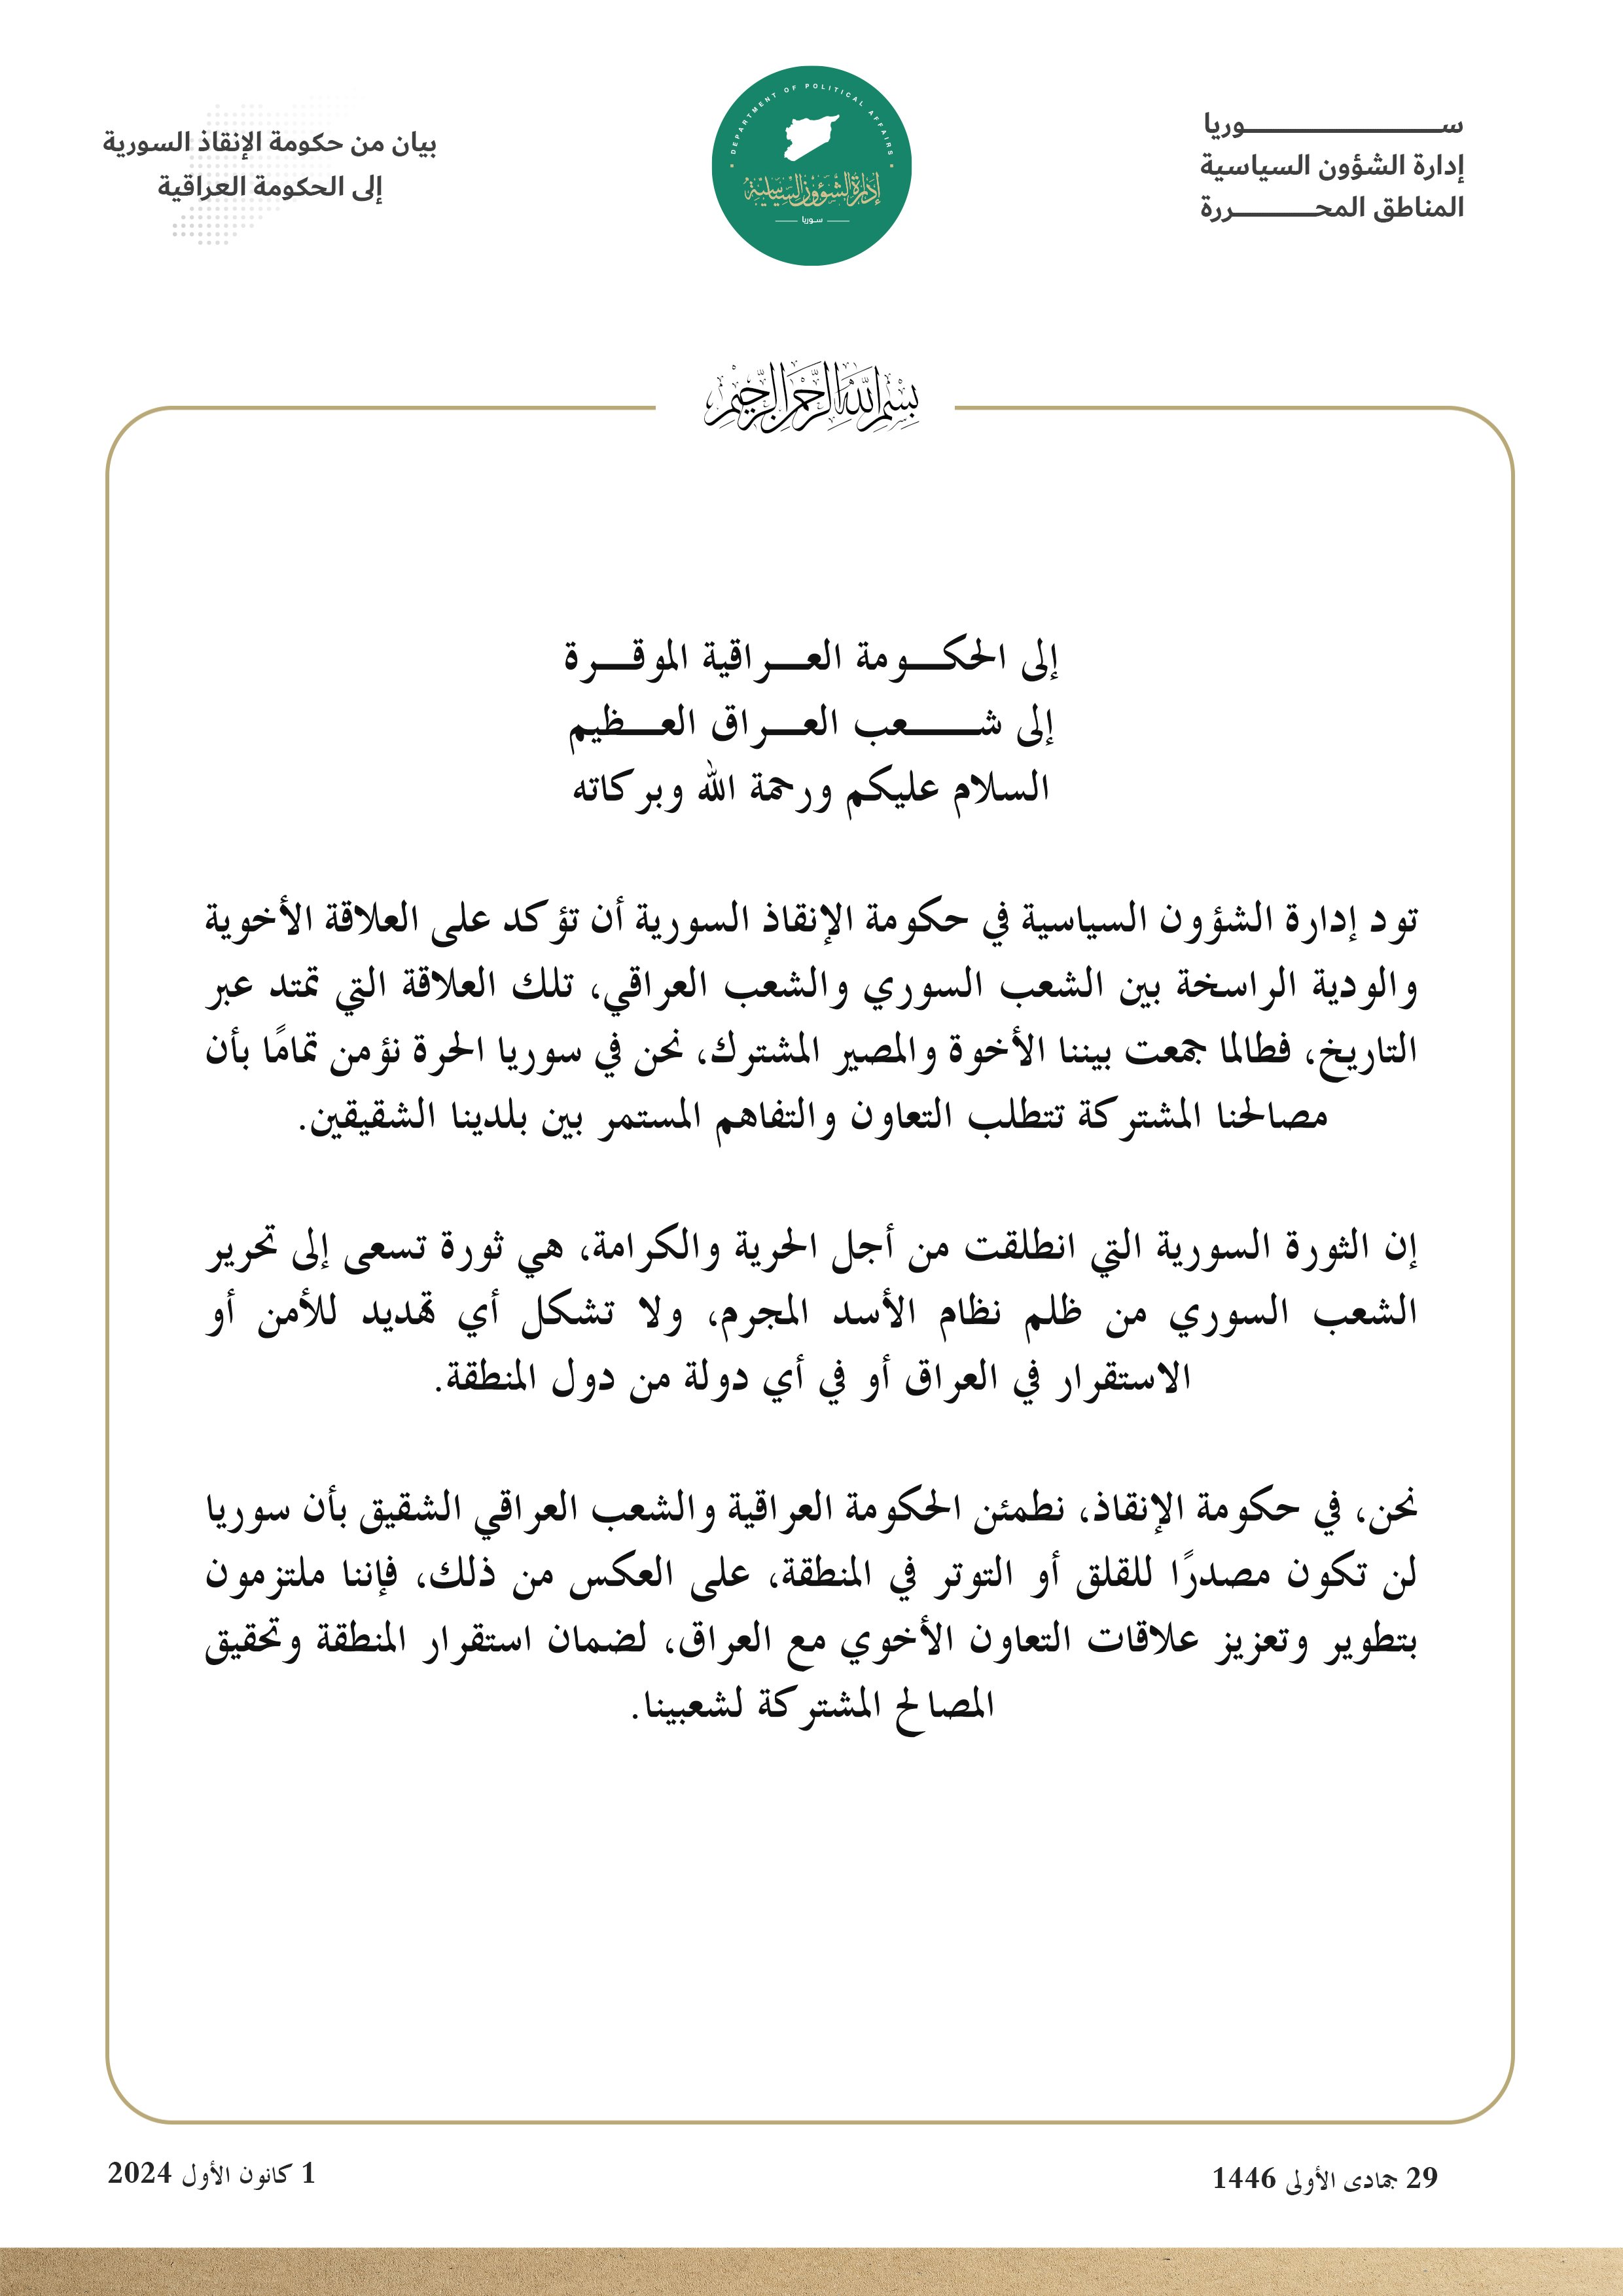 سوريا
إدارة الشؤون السياسية
المناطق المحررة
DEPARTMENT OF POLITICAL AFFAIRS
إدارة الشؤون السياسية
سوريا
بيان من حكومة الإنقاذ السورية
إلى الحكومة العراقية
بسم الله الرحمن الرحيم
إلى الحكومة العراقية الموقرة
إلى شعب العراق العظيم
السلام عليكم ورحمة الله وبركاته
تود إدارة الشؤون السياسية في حكومة الإنقاذ السورية أن تؤكد على العلاقة الأخوية
والودية الراسخة بين الشعب السوري والشعب العراقي، تلك العلاقة التي تمتد عبر
التاريخ، فطالما جمعت بيننا الأخوة والمصير المشترك، نحن في سوريا الحرة نؤمن تمامًا بأن
مصالحنا المشتركة تتطلب التعاون والتفاهم المستمر بين بلدينا الشقيقين.
إن الثورة السورية التي انطلقت من أجل الحرية والكرامة، هي ثورة تسعى إلى تحرير
الشعب السوري من ظلم نظام الأسد المجرم، ولا تشكل أي تهديد للأمن أو
الاستقرار في العراق أو في أي دولة من دول المنطقة.
نحن، في حكومة الإنقاذ، نطمئن الحكومة العراقية والشعب العراقي الشقيق بأن سوريا
لن تكون مصدرًا للقلق أو التوتر في المنطقة، على العكس من ذلك، فإننا ملتزمون
بتطوير وتعزيز علاقات التعاون الأخوي مع العراق، لضمان استقرار المنطقة وتحقيق
المصالح المشتركة لشعبينا.
29 جمادى الأولى 1446
1 كانون الأول 2024